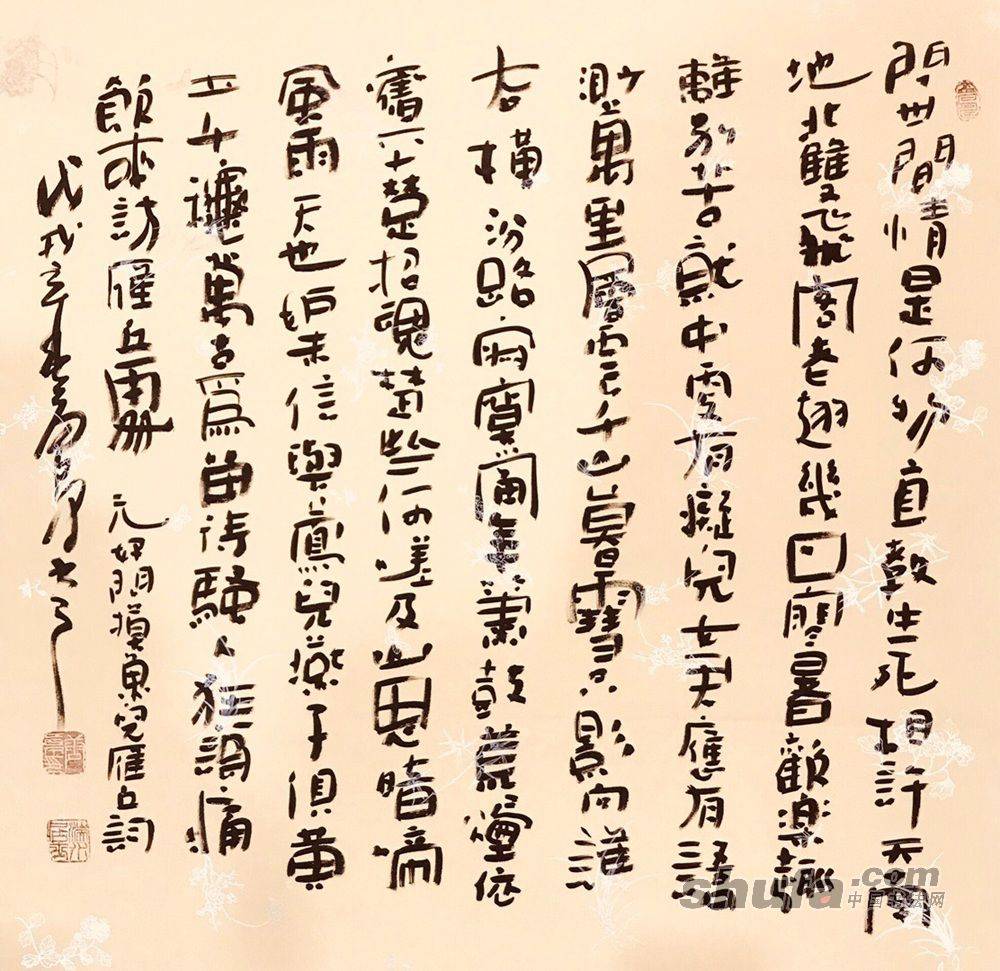 問世間情是何物直教生死相許天南
地北雙飛客老翅幾回寒暑歡樂趣
離別苦就中更有癡兒女君應有語
渺萬里層雲千山暮雪只影向誰
去橫汾路寂寞當年簫鼓荒煙依
舊平楚招魂楚些何嗟及山鬼暗啼
風雨天也妒未信與鶯兒燕子俱黃
土千穐萬古爲留待騷人狂謌痛
飲來訪雁丘處 元好問摸魚兒雁丘詞
戊戌年
shufa.com
中国书法网